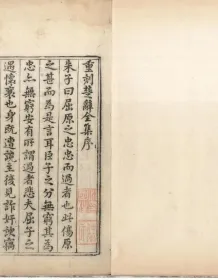 重刻楚辭全集序
朱子曰屈原之忠忠而過者也此傷原
之甚而為是言耳臣子之分無窮其為
忠亦無窮安有所謂過者夫屈子之
遇懷襄也身既遭讒主復見詐奸諛竊